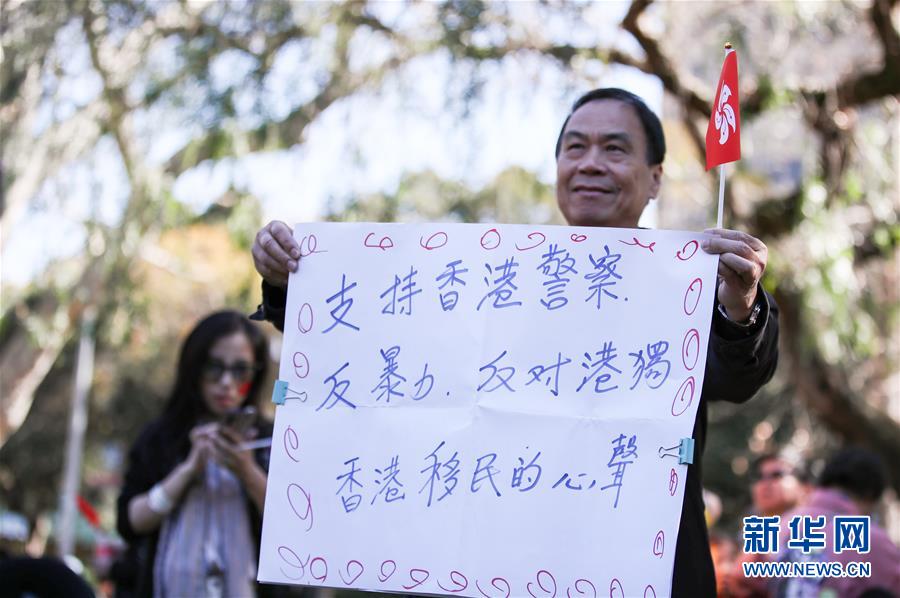 支持香港警察.
反暴力.反对港獨
香港移民的心聲
新华网
WWW.NEWS.CN